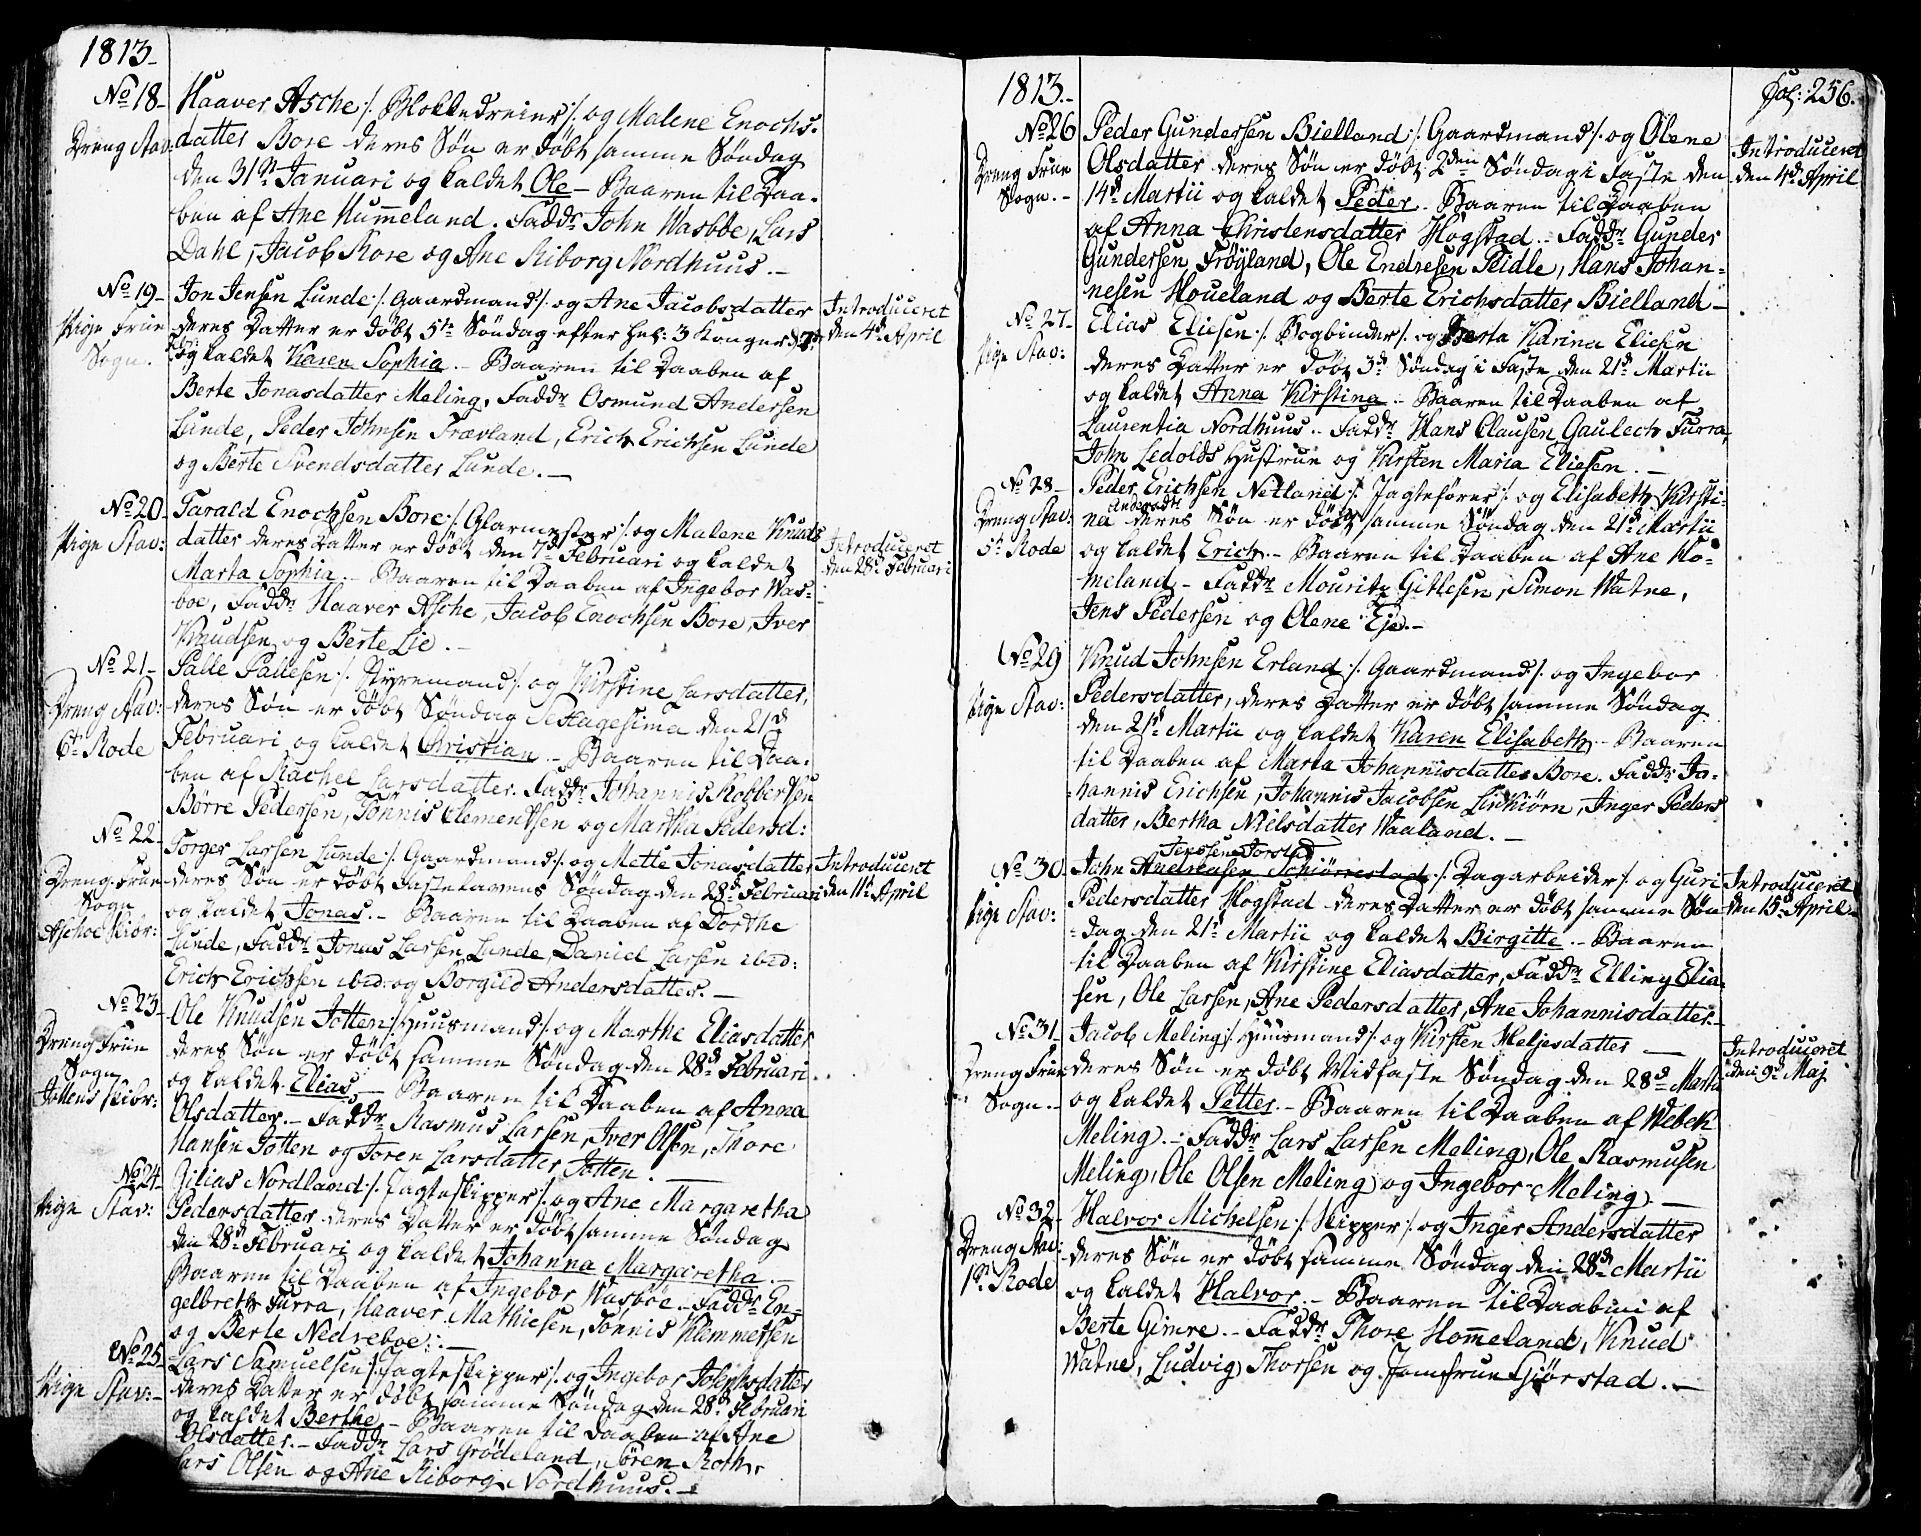 1813.
No 18 Haaver Asche /: Blokkedreier :/ og Malene Enochs-
Dreng Stav: datter Bore deres Søn er døbt samme Søndag
den 31te Januari og kaldet Ole - Baaren til Daa-
ben af Ane Hummeland. Faddr John Wasbøe, Lars
Dahl, Jacob Bore og Ane Kiborg Nordhuus. -
No 19 Jon Jensen Lunde /: Gaardmand :/ og Ane Jacobsdatter
Introduceret
Pige Frue deres Datter er døbt 5te Søndag efter Hel: 3 Konger
den 4de April
Sogn. og kaldet Karen Sophia. - Baaren til Daaben af
Berte Jonasdatter Meling, Faddr Osmund Andersen
Lunde, Peder Johnsen Trævland, Erich Erichsen Lunde
og Berte Svendsdatter Lunde. -
No 20 Tarald Enochsen Bore /: Glarmester :/ og Malene Knuds
Pige Stav: datter deres Datter er døbt den 7de Februari og kaldet
Introduceret
den 28de Februari
Marta Sophia. - Baaren til Daaben af Ingebor Was-
boe, Faddr Haaver Asche, Jacob Enochsen Bore, Iver
Knudsen og Berte Lie. -
No 21 Palle Pallesen /: Styremand :/ og Kirstine Larsdatter,
Dreng Stav: deres Søn er døbt Søndag Sexagesima den 21d
6te Rode Februari og kaldet Christian. - Baaren til Daa-
ben af Rachel Larsdatter. Faddr Johannis Robbersen
Børre Pedersen, Tønnis Clementsen og Martha Pedersd:
No 22 Torger Larsen Lunde /: Gaardmand :/ og Mette Jonasdatter
Introduceret
Dreng Frue deres Søn er døbt Fastelavens Søndag den 28de Februari
den 11te April
Sogn og kaldet Jonas. - Baaren til Daaben af Dorthe
Aschøe Skibr: Lunde, Faddr Jonas Larsen Lunde Daniel Larsen ibid:
Erich Erichsen ibid: og Borgild Andersdatter. -
No 23 Ole Knudsen Jotten /: Huusmand :/ og Marthe Eliasdatter
Dreng Frue deres Søn er døbt samme Søndag den 28de Februari
Sogn og kaldet Elias - Baaren til Daaben af Anna
Jottens Skibr: Olsdatter. - Faddr Rasmus Larsen, Iver Olsen, Thore
Hansen Jotten og Joren Larsdatter Jotten. -
No 24 Zilias Nordland /: Jagteskipper :/ og Ane Margaretha
Pige Stav: Pedersdatter deres Datter er døbt samme Søndag
den 28de Februari og kaldet Johanna Margaretha. -
Baaren til Daaben af Ingebor Wasbøe. - Faddr En-
gelbreth Furra, Haaver Mathiesen, Tønnis Klemmetsen
og Berte Nedreboe. -
No 25 Lars Samuelsen /: Jagteskipper :/ og Ingebor Josephsdatter
Pige Stav: deres Datter er døbt samme Søndag den 28de Februari
og kaldet Berthe - Baaren til Daaben af Ane
Olsdatter. - Faddr Lars Grödeland, Søren Roth,
Lars Olsen og Ane Kiborg Nordhuus. -
1813.
Fol: 256.
No 26 Peder Gundersen Bielland /: Gaardmand :/ og Olene
Introduceret
Dreng Frue Olsdatter deres Søn er døbt 2den Søndag i Faste den
den 4de April
Sogn. - 14de Martii og kaldet Peder. - Baaren til Daaben
af Anna Christensdatter Hogstad. - Faddr Gunder
Gundersen Frøyland, Ole Endresen Kidle, Hans Johan-
nesen Houeland og Berte Erichsdatter Bielland -
No 27 Elias Eliesen /: Bogbinder :/ og Berta Karina Eliesen
Pige Stav: deres Datter er døbt 3de Søndag i Faste den 21de Martii
og kaldet Anna Kirstina. - Baaren til Daaben af
Laurentia Nordhuus. - Faddr Hans Clausen Gaulech Furra,
John Ledolds Hustrue og Kirsten Maria Eliesen. -
No 28 Peder Erichsen Netland /: Jagtefører :/ og Elisabeth Kirsti-
Dreng Stav: na deres Søn er døbt samme Søndag den 21de Martii
5te Rode og kaldet Erich. - Baaren til Daaben af Ane Ho-
meland - Faddr Mouritz Gitlesen, Simon Watne,
Jens Pedersen og Olene Eje. -
No 29 Knud Johnsen Erland /: Gaardmand :/ og Ingebor
Pige Stav: Pedersdatter, deres Datter er døbt samme Søndag
den 21de Martii og kaldet Karen Elisabeth. - Baaren
til Daaben af Marta Johannisdatter Bore. Faddr Jo-
hannis Erichsen, Johannis Jacobsen Lindkiørn, Inger Peders
datter, Bertha Nielsdatter Waaland. -
Jenssen Jorstad
No 30 John Andreasen Schiörrestad /: Dagarbeider :/ og Guri
Introduceret
Pige Stav: Pedersdatter Hogstad deres Datter er døbt samme Søn
den 15de April
dag den 21de Martii og kaldet Birgitte. - Baaren
til Daaben af Kirstine Eliasdatter, Faddr Elling Elia-
sen, Ole Larsen, Ane Pedersdatter, Ane Johannisdatter. -
No 31 Jacob Meling /: Huusmand :/ og Kirsten Meljesdatter -
Introduceret
Dreng Frue deres Søn er døbt Midfaste Søndag den 28de Martii
den 9de Maj
Sogn. - og kaldet Petter. - Baaren til Daaben af Webech
Meling. - Faddr Lars Larsen Meling, Ole Rasmusen
Meling, Ole Olsen Meling og Ingebor Meling. -
No 32 Halvor Michelsen /: Skipper :/ og Inger Andersdatter
Dreng Stav: deres Søn er døbt samme Søndag den 28de Martii
1te Rode og kaldet Halvor. - Baaren til Daaben af
Berte Gimre. - Faddr Thore Hommeland, Knud
Watne, Ludvig Thorsen og Jomfrue Kjørstad. -